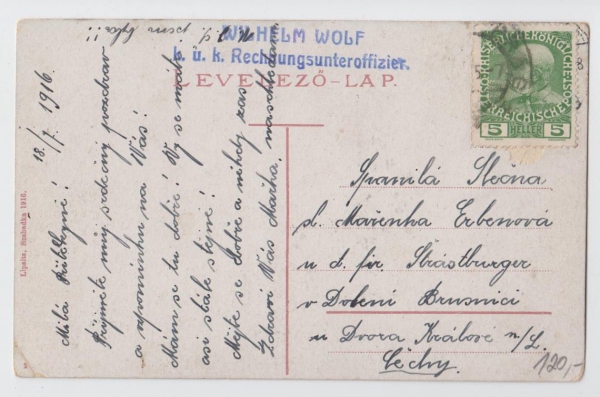 WILHELM WOLF
k. u. k. Rechnungsunteroffizier.
LEVELEZŐ-LAP.
18./7. 1916.
Milá
Přijměte můj srdečný pozdrav
a vzpomínku na Vás!
Mám se tu dobře! Vy se máte
asi stále stejně!
Mějte se dobře a někdy zas
Zdraví Vás Mařka,
jsem byla!!
Lipsitz, Szabadka 1916.
K.K. OESTERREICHISCHE POST
5 HELLER 5
Spanilá Slečna
sl. Mařenka Erbenová
u d. fir. Strástburger
v Dolení Brusnici
u Dvora Králové n/L.
Čechy.
120,-